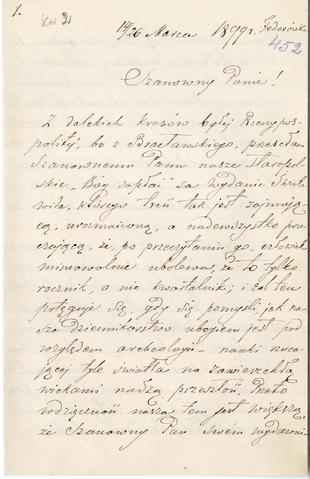 1.
14/26 Marca 1899 r. Fedorówka
452
Szanowny Panie!
Z dalekich kresów byłej Rzeczypos-
politej, bo z Bracławskiego, przesyłam
Szanownemu Panu nasze staropol-
skie „Bóg zapłać" za wydanie Świato
wita, którego treść tak jest zajmują-
cą, urozmaiconą, a nadewszystko pou-
czającą, że, po przeczytaniu go, człowiek
mimowolnie ubolewa, że to tylko
rocznik, a nie kwartalnik; i żal ten
potęguje się, gdy się pomyśli jak na-
sze dziennikarstwo ubogiem jest pod
względem archeologii - nauki rzuca-
jącej tyle światła na zawierzchłą
wiekami naszą przeszłość. Przeto
wdzięczność nasza tem jest większą,
że Szanowny Pan swem wydawni-